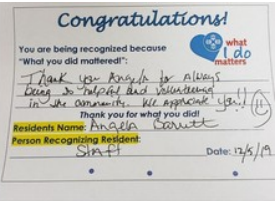 Congratulations!
You are being recognized because
"What you did mattered!":
what
I do
matters
Thank you Angela for Always
being so helpful and volunteering
in the community. We appreciate you!!
Thank you for what you did!
Residents Name: Angela Barrett
Person Recognizing Resident:
Staff
Date: 12/5/19